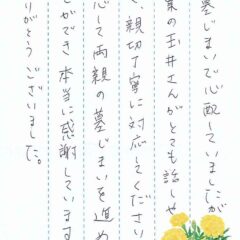 墓じまいで心配していましたが
業の玉井さんがとても話しや
、親切丁寧に対応してください
心して両親の墓じまいを進め
とができ本当に感謝しています
りがとうございました。